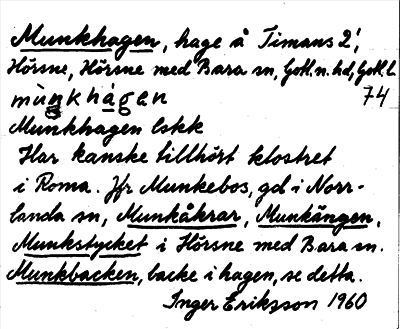 Munkhagen, hage å Timans 2¹,
Hörsne, Hörsne med Bara sn, Gotl. n. hd, Gotl. l.
mùnkhágen 74
Munkhagen lskk
Har kanske tillhört klostret
i Roma. Jfr Munkebos, gd i Norr-
landa sn, Munkåkrar, Munkängen,
Munkstycket i Hörsne med Bara sn.
Munkbacken, backe i hagen, se detta.
Inger Eriksson 1960